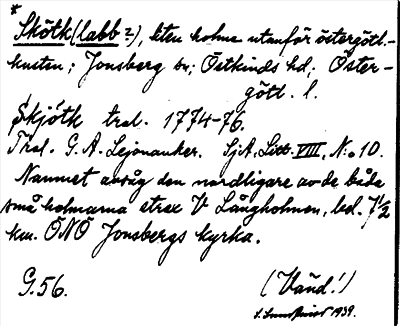 *
Skötk (labb 2), liten holme utanför östergötl.-
kusten; Jonsberg sn; Östkinds hd; Öster-
götl. l.
Skjötk trol. 1774-76.
Trol. G. A. Lejonanker. SjA. Litt. VIII, No 10.
Namnet avsåg den nordligare av de båda
små holmarna strax V Långholmen, bel. 7 1/2
km. ÖNÖ Jonsbergs kyrka.
G. 56. (Vänd!)
1939.